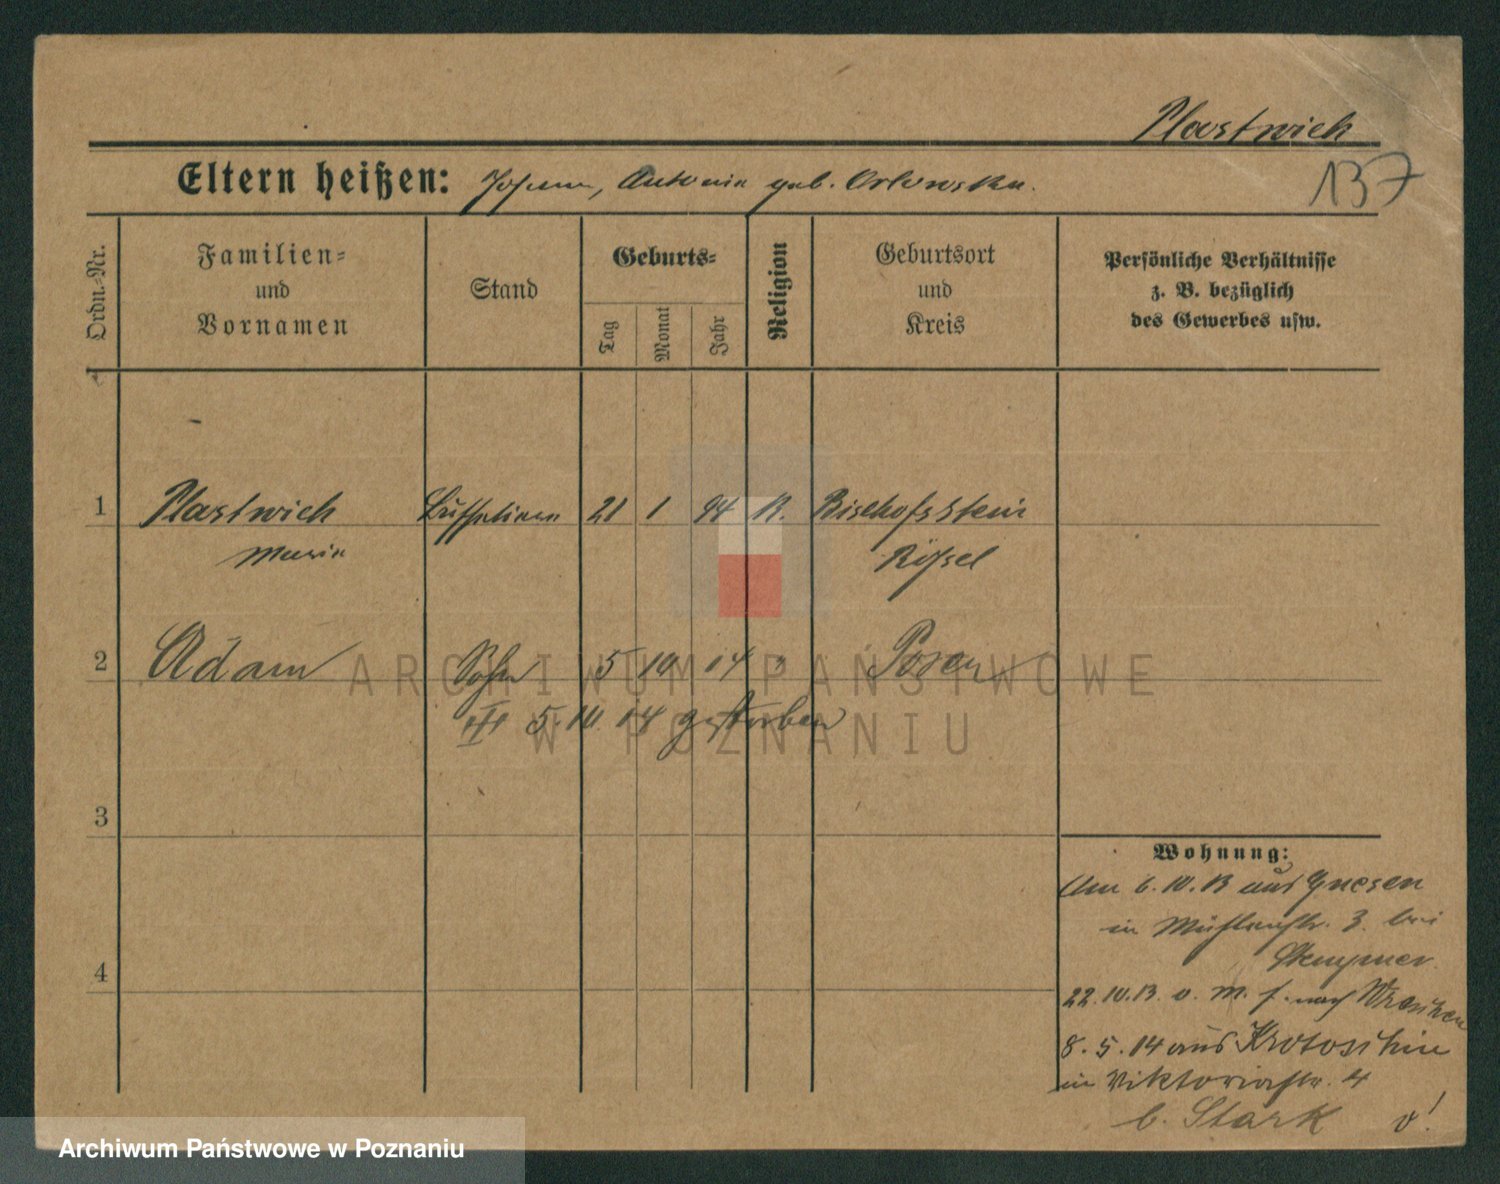 Plastwich
137
Eltern heißen: Johann, Antonia geb. Orlowska.
Ordn.-Nr.
Familien-
und
Vornamen
Stand
Geburts-
Tag
Monat
Jahr
Religion
Geburtsort
und
Kreis
Persönliche Verhältnisse
z. B. bezüglich
des Gewerbes usw.
1 Plastwich 21 1 94 K. Bischofsstein
Maria Rössel
2 Adam Sohn 5 10 14 Posen
5.10.14 gestorben
3
4
ARCHIWUM PAŃSTWOWE
W POZNANIU
Wohnung:
Am 6.10.13 aus Gnesen
in Mühlenstr. 3. bei
22.10.13. v. M. f. nach Wreschen
8.5.14 aus Krotoschin
in Viktoriastr. 4
b. Stark v!
Archiwum Państwowe w Poznaniu